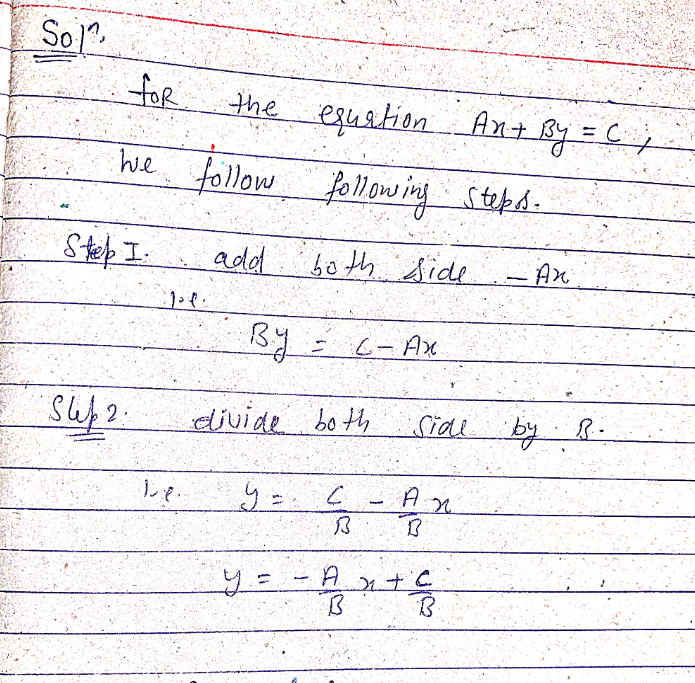 Solⁿ.
for the equation Ax + By = C,
We follow following steps.
Step I. add both side - Ax
i.e.
By = C - Ax
Step 2. divide both side by B.
i.e. y = C/B - A/B x
y = - A/B x + C/B